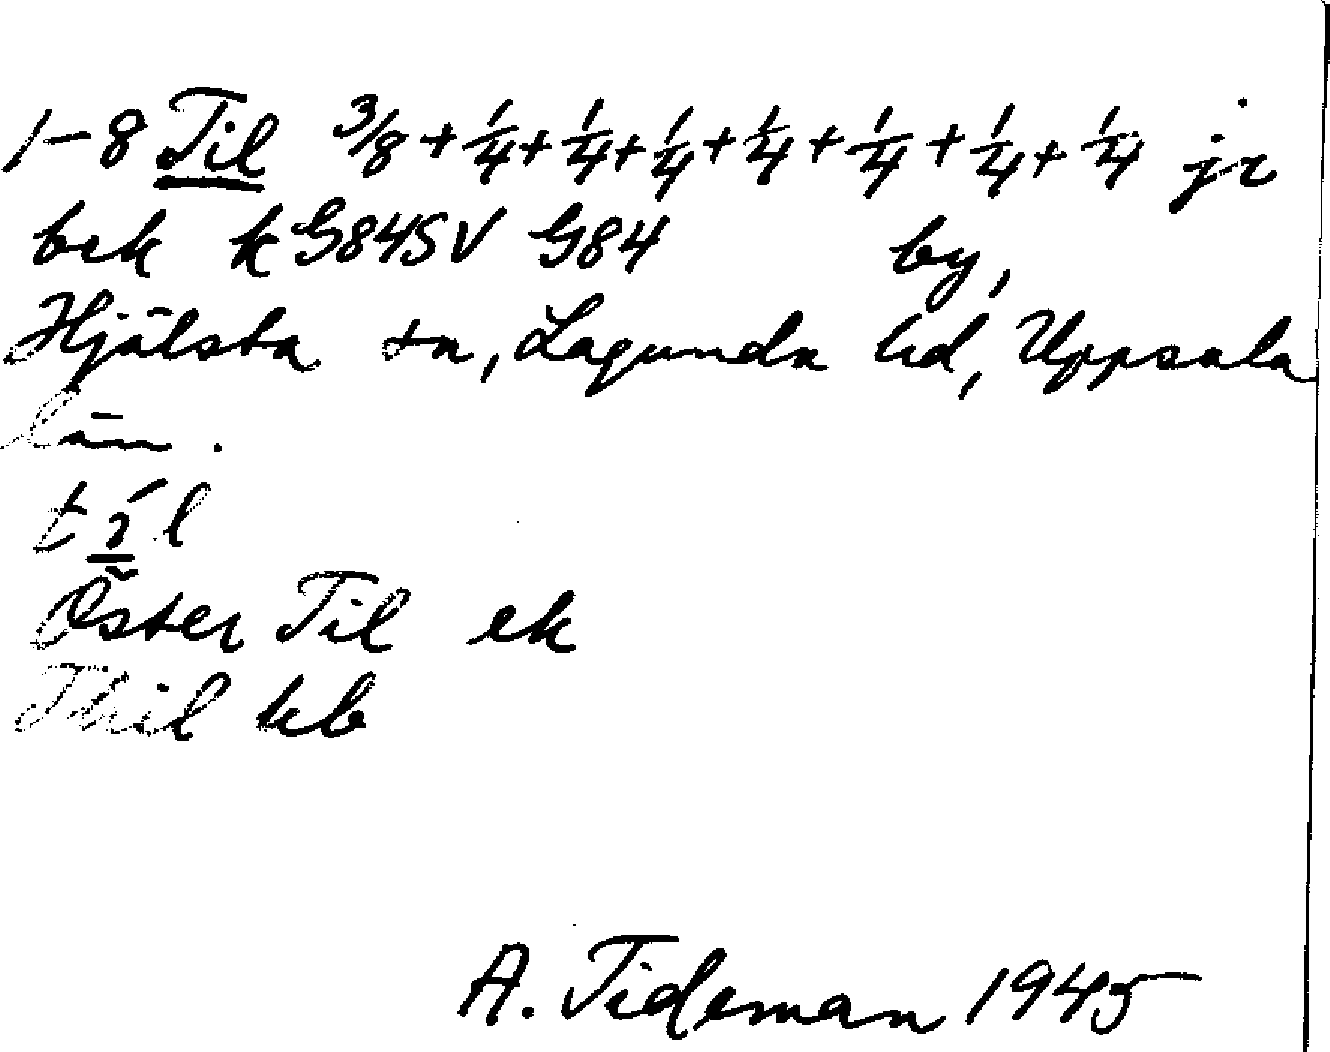 1-8 Til 3/8 + 1/4 + 1/4 + 1/4 + 1/4 + 1/4 + 1/4 + 1/4 jr
bek k G84SV G84 by,
Hjälsta sn, Lagunda hd, Uppsala
län.
til
Öster Til ek
Thil kb
A. Tideman 1945